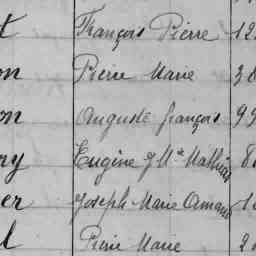 t François Pierre 12
on Pierre Marie 38
on Auguste françois 99
ry Eugène J Mie Mathias 8
er Joseph Marie Armand 1
l Pierre Marie 2